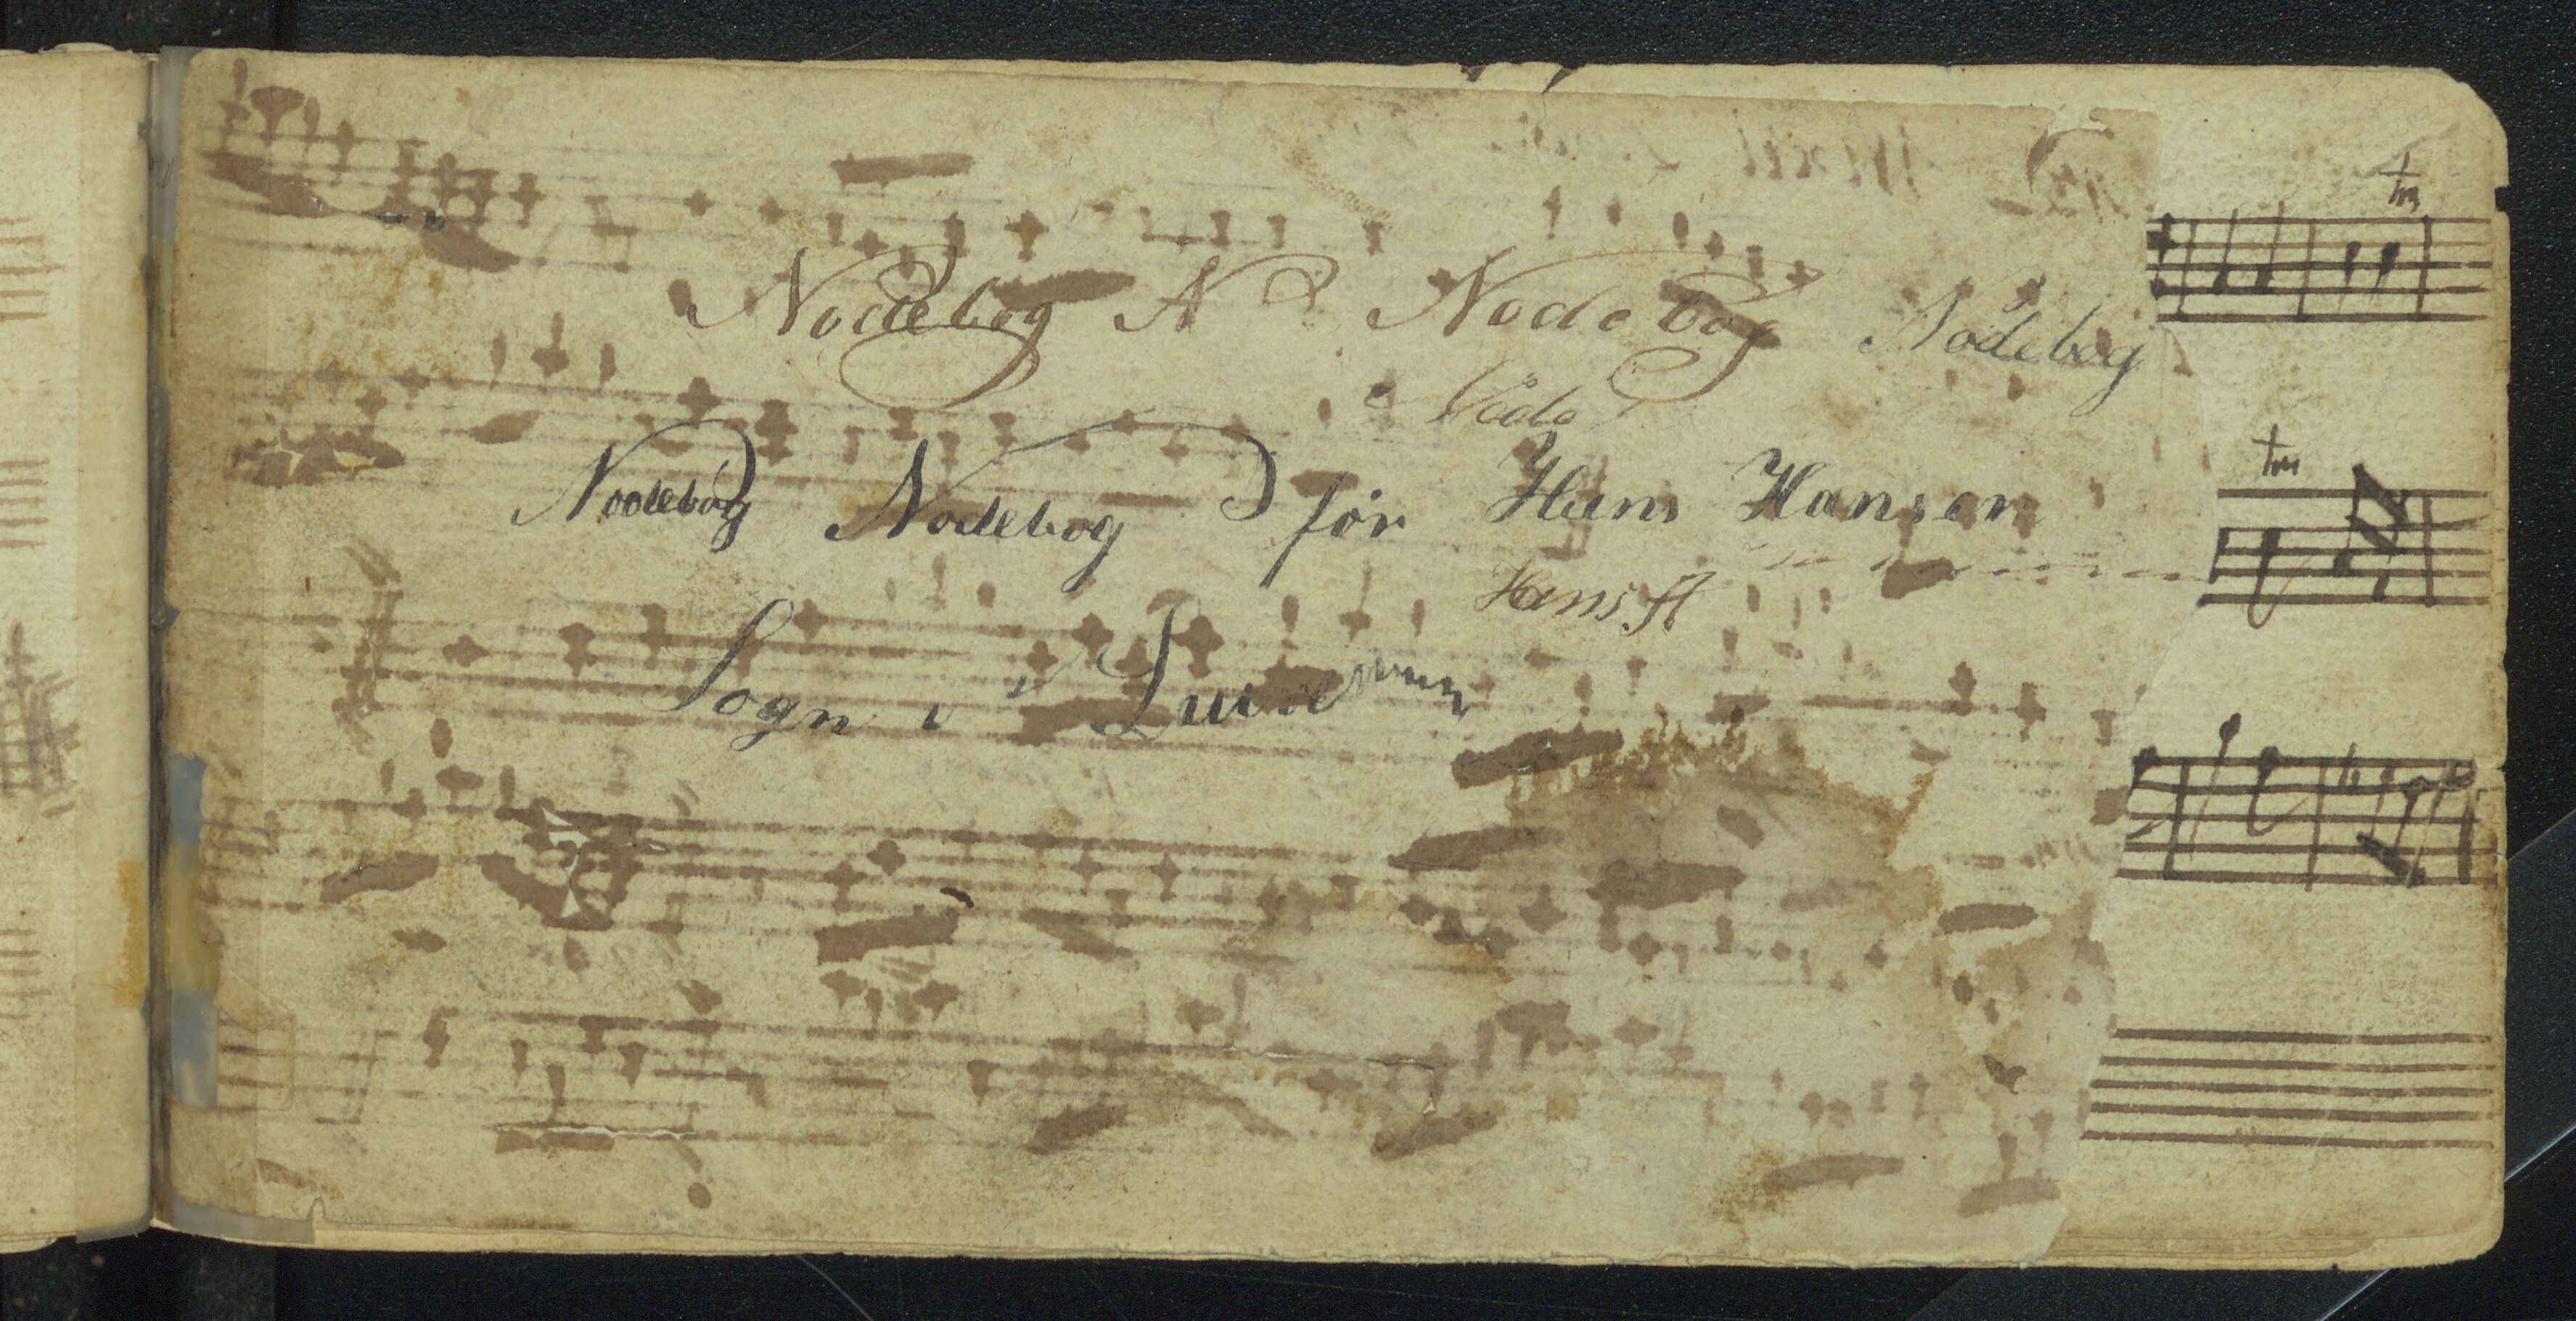 Nodebog N Nodebog Nodebog
Node
Nodebog Nodebog for Hans Hansen
Hans H
Sogn i
tr
tr